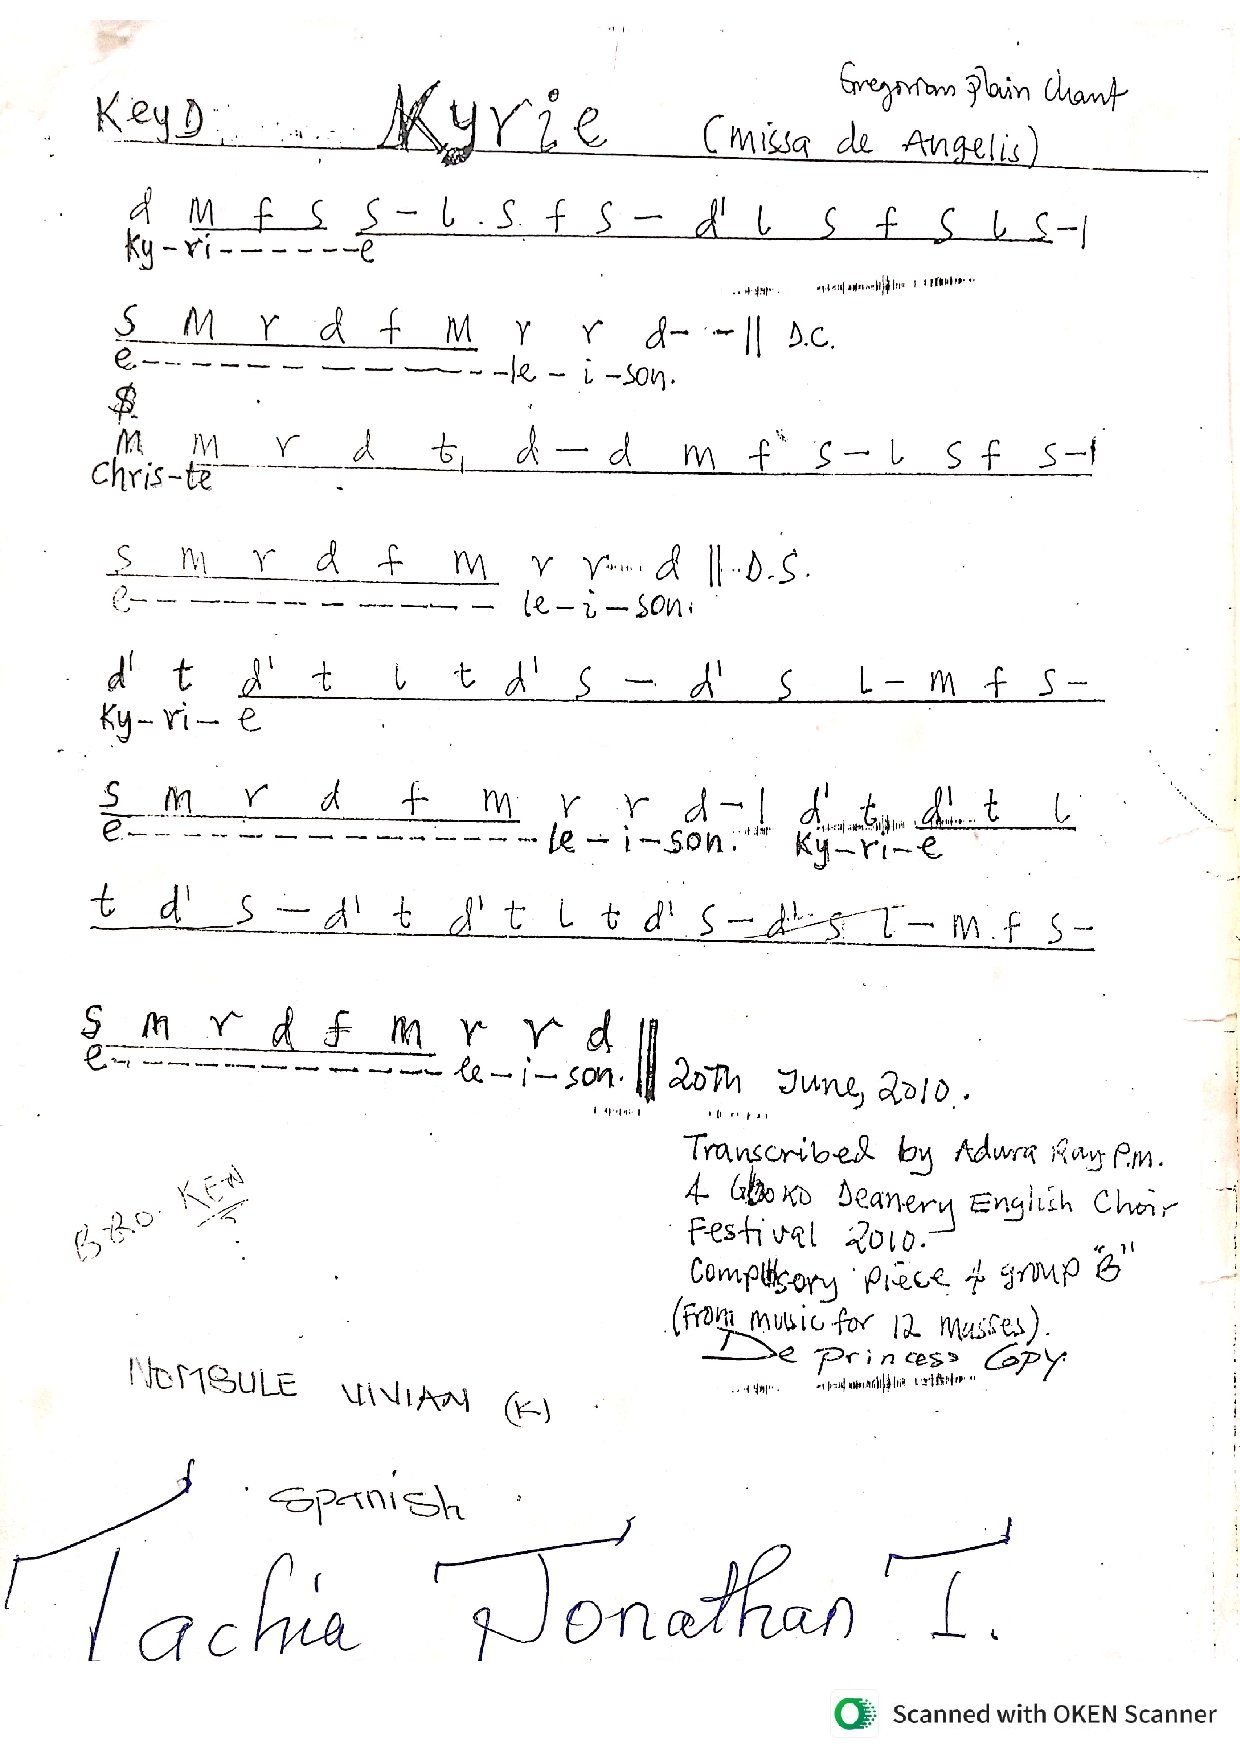 Gregorian Plain Chant
Key D Kyrie (Missa de Angelis)
d m f s s - l . s . f s - d' l s f s l s - |
Ky - ri - - - - - - - e
s m r d f m r r d - - - || D.C.
e - - - - - - - - - - - - - - le - i - son.
$
m m r d t, d - d m f s - l s f s - |
Chris - te
s m r d f m r r - - - d || D.S.
e - - - - - - - - - - - le - i - son.
d' t d' t l t d' s - d' s l - m f s -
Ky - ri - e
s m r d f m r r d - | d' t d' t l
e - - - - - - - - - - - - - - le - i - son. Ky - ri - e
t d' s - d' t d' t l t d' s - d' s l - m . f s -
s m r d f m r r d ||
e - - - - - - - - - - - - le - i - son. 20th June, 2010.
Transcribed by Adura Ray P.M.
4 Gboko Deanery English Choir
Festival 2010.
Compulsory piece 4 group "B"
(From music for 12 Masses).
De princess Copy
BRO. KEN
NOMBULE VIVIAN (K)
Spanish
Tachia Jonathan T.
Scanned with OKEN Scanner